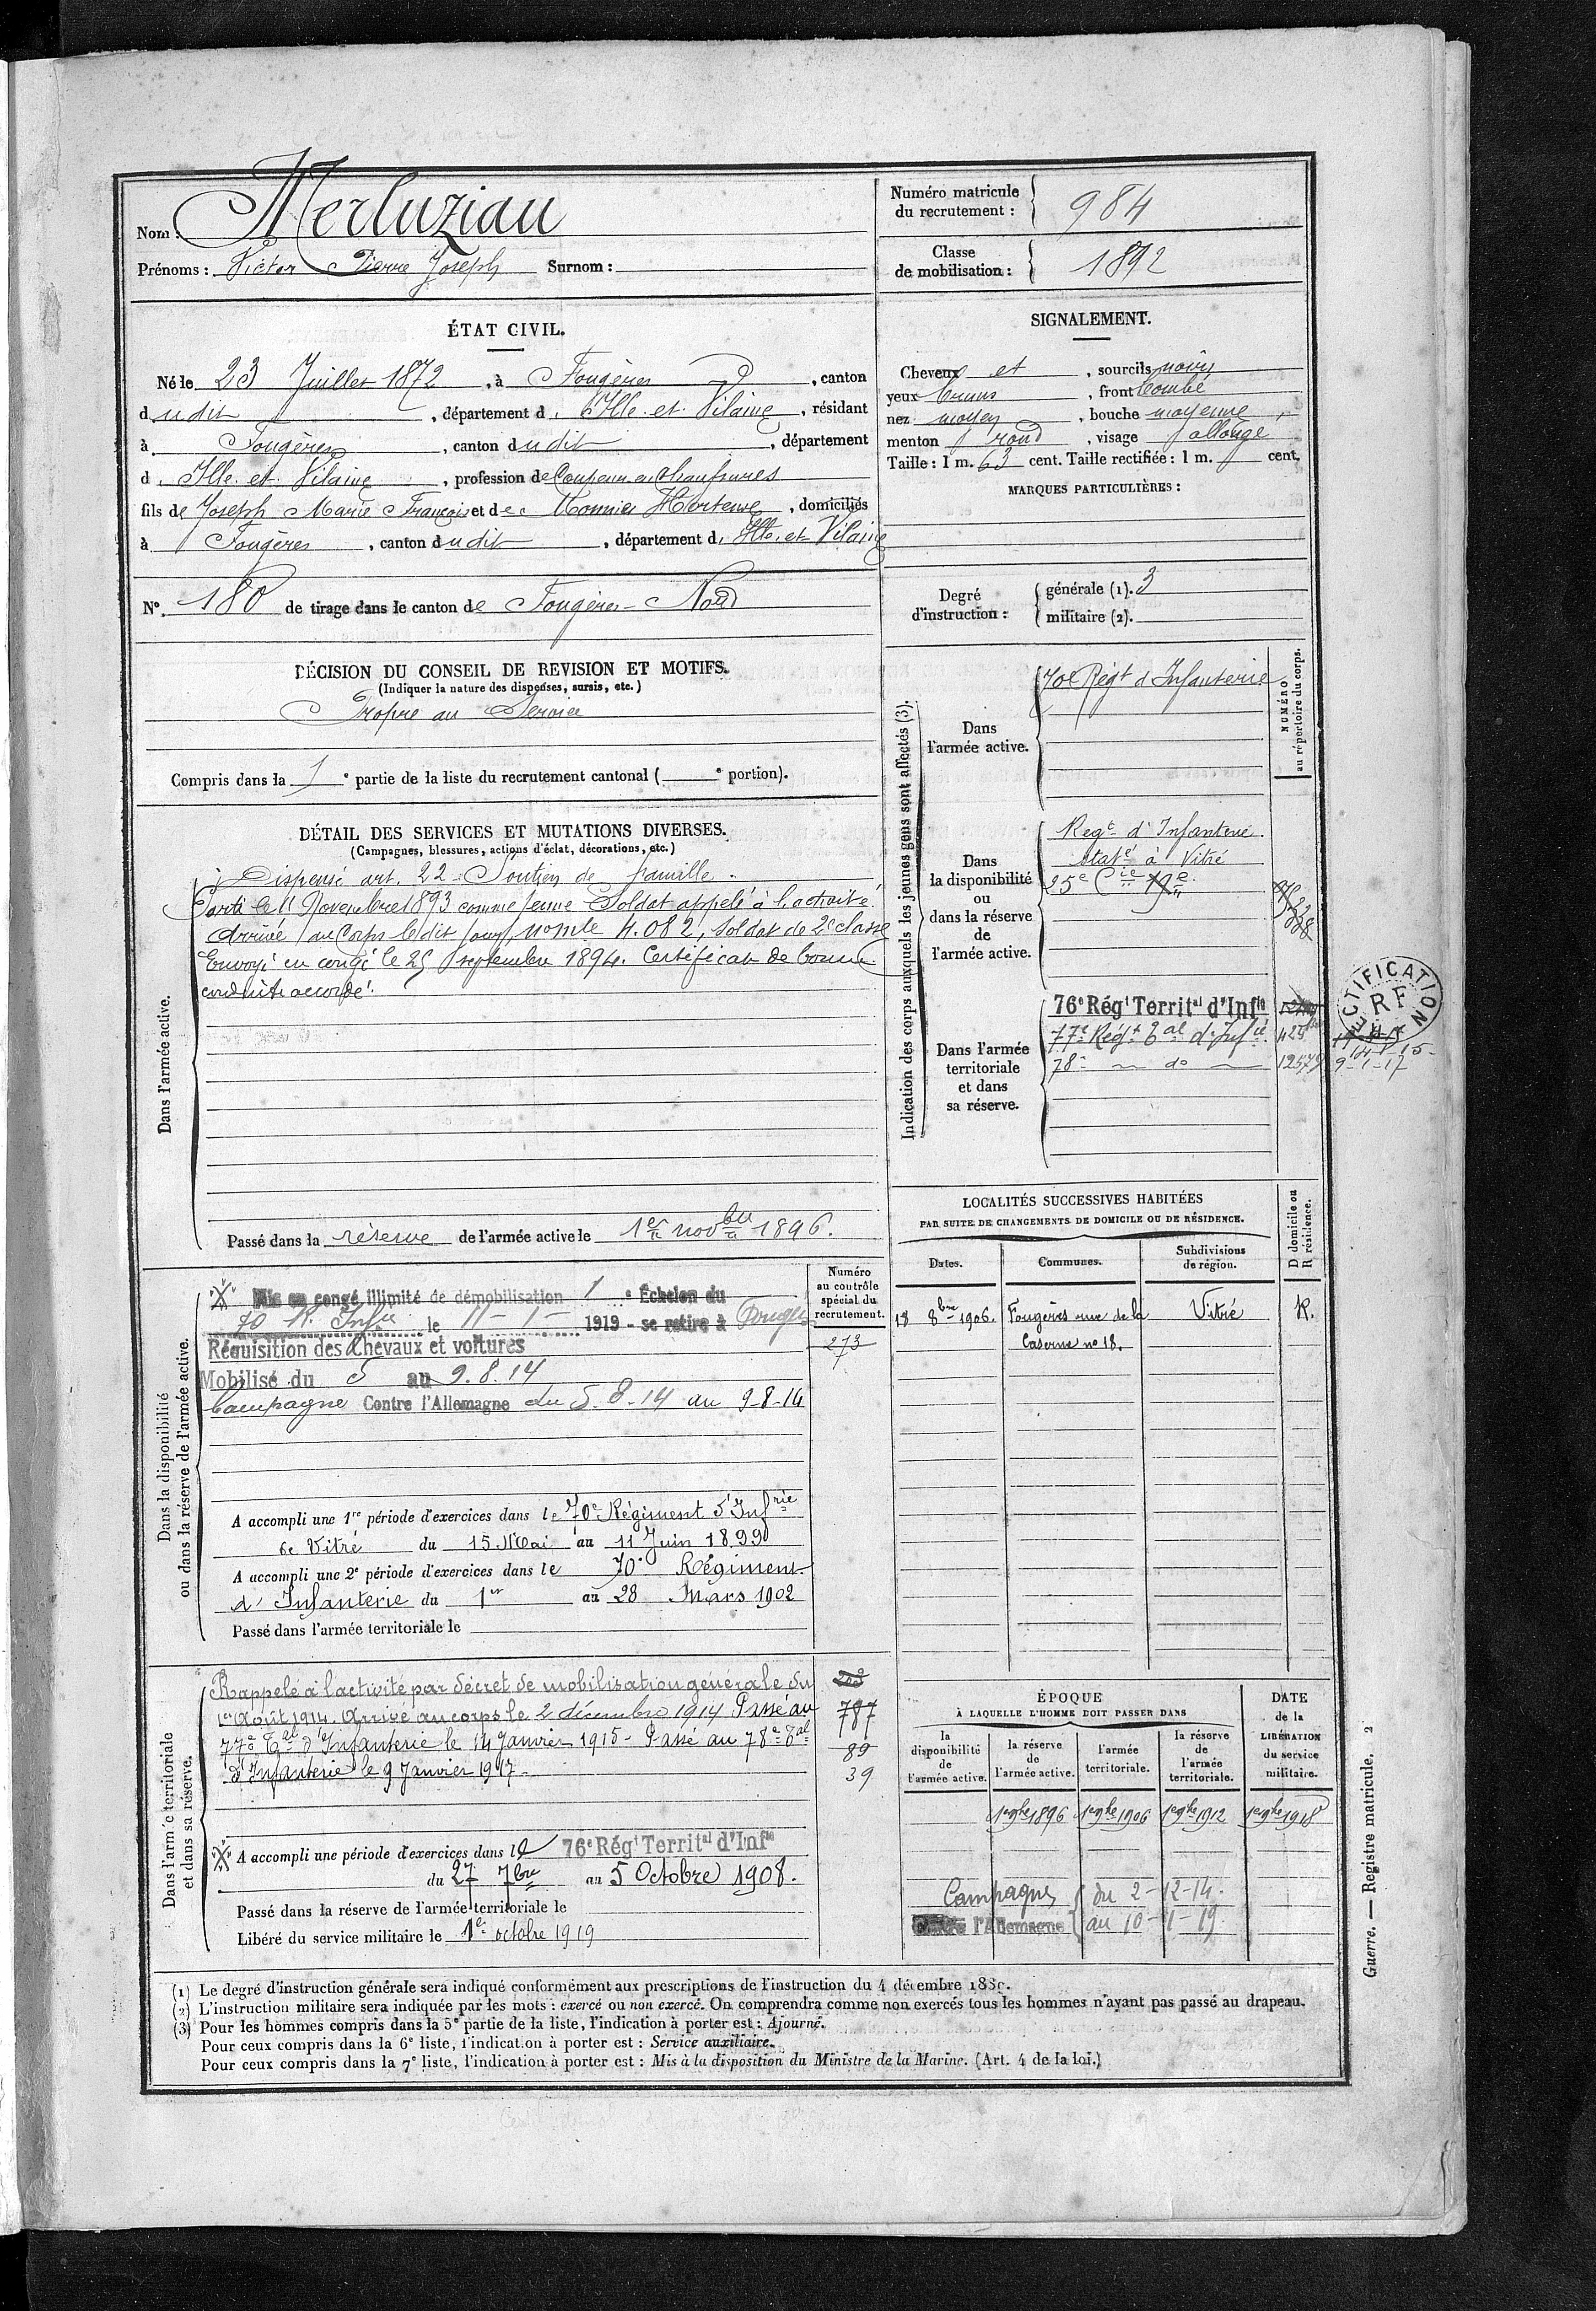 Nom : Merluziau
Prénoms : Victor Pierre Joseph Surnom :
Numéro matricule
du recrutement :
984
Classe
de mobilisation :
1892
ÉTAT CIVIL.
Né le 23 Juillet 1872, à Fougères, canton
dudit, département d'Ille-et-Vilaine, résidant
à Fougères, canton dudit, département
d'Ille-et-Vilaine, profession de Coupeur en Chaussures
fils de Joseph Marie François et de Monnier Hortense, domiciliés
à Fougères, canton dudit, département d'Ille-et-Vilaine
N° 180 de tirage dans le canton de Fougères-Nord
SIGNALEMENT.
Cheveux et, sourcils noirs
yeux bruns, front bombé
nez moyen, bouche moyenne,
menton rond, visage allongé
Taille : 1 m. 63 cent. Taille rectifiée : 1 m. cent.
MARQUES PARTICULIÈRES :
Degré
d'instruction :
générale (1). 3
militaire (2).
DÉCISION DU CONSEIL DE REVISION ET MOTIFS.
(Indiquer la nature des dispenses, sursis, etc.)
Propre au Service
Compris dans la 1e partie de la liste du recrutement cantonal ( e portion).
DÉTAIL DES SERVICES ET MUTATIONS DIVERSES.
(Campagnes, blessures, actions d'éclat, décorations, etc.)
Dans l'armée active.
Dispensé art. 22. Soutien de famille.
Parti le 11 Novembre 1893 comme jeune Soldat appelé à l'activité.
Arrivé au Corps le dit jour, nomle 4.082, soldat de 2e classe
Envoyé en congé le 25 septembre 1894. Certificat de bonne
conduite accordé.
Passé dans la réserve de l'armée active le 1er novbre 1896.
Indication des corps auxquels les jeunes gens sont affectés (3).
NUMÉRO
au répertoire du corps.
Dans
l'armée active.
70e Régt d'Infanterie
Dans
la disponibilité
ou
dans la réserve
de
l'armée active.
Regt d'Infanterie
statné à Vitré
25e Cie
Dans l'armée
territoriale
et dans
sa réserve.
76e Régt Territal d'Infie
77e Régt Tal d'Infie.
78e — do —
12579
14-1-15
9-1-17
RECTIFICATION
RF
LOCALITÉS SUCCESSIVES HABITÉES
PAR SUITE DE CHANGEMENTS DE DOMICILE OU DE RÉSIDENCE.
D domicile ou
R résidence.
Dates.
Communes.
Subdivisions
de région.
18 8bre 1906. Fougères rue de la Vitré R.
Caserne no 18.
Dans la disponibilité
ou dans la réserve de l'armée active.
Numéro
au contrôle
spécial du
recrutement.
273
Mis en congé illimité de démobilisation 1e Échelon du
70 R. Infie le 11-1- 1919 - se retire à Fougères
Réquisition des Chevaux et voitures
Mobilisé du 5 au 9.8.14
Campagne Contre l'Allemagne du 5-8-14 au 9-8-14
A accompli une 1re période d'exercices dans le 70e Régiment d'Infrie
de Vitré du 15 Mai au 11 Juin 1899
A accompli une 2e période d'exercices dans le 70e Régiment
d'Infanterie du 1er au 28 Mars 1902
Passé dans l'armée territoriale le
Dans l'armée territoriale
et dans sa réserve.
Rappelé à l'activité par décret de mobilisation générale du
1er Août 1914. Arrivé au corps le 2 décembre 1914 Passé au
77e Tal d'Infanterie le 14 Janvier 1915 - Passé au 78e Tal
d'Infanterie le 9 Janvier 1917.
787
89
39
A accompli une période d'exercices dans le 76e Régt Territal d'Infie
du 27 7bre au 5 Octobre 1908.
Passé dans la réserve de l'armée territoriale le
Libéré du service militaire le 1er octobre 1919
ÉPOQUE
À LAQUELLE L'HOMME DOIT PASSER DANS
la
disponibilité
de
l'armée active.
la réserve
de
l'armée active.
l'armée
territoriale.
la réserve
de
l'armée
territoriale.
DATE
de la
LIBÉRATION
du service
militaire.
1er 9bre 1896 1er 9bre 1906 1er 9bre 1912 1er 9bre 1918
Campagnes du 2-12-14.
contre l'Allemagne au 10-1-19
(1) Le degré d'instruction générale sera indiqué conformément aux prescriptions de l'instruction du 4 décembre 1889.
(2) L'instruction militaire sera indiquée par les mots : exercé ou non exercé. On comprendra comme non exercés tous les hommes n'ayant pas passé au drapeau.
(3) Pour les hommes compris dans la 5e partie de la liste, l'indication à porter est : Ajourné.
Pour ceux compris dans la 6e liste, l'indication à porter est : Service auxiliaire.
Pour ceux compris dans la 7e liste, l'indication à porter est : Mis à la disposition du Ministre de la Marine. (Art. 4 de la loi.)
Guerre. — Registre matricule. 2